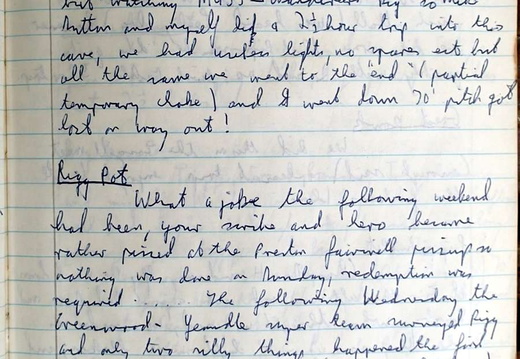 but watching
Mutton and myself did a 2½ hour trip into this
cave, we had useless lights, no spares ect but
all the same we went to the "end" (partial
temporary choke) and I went down 70' pitch got
lost on way out!
Rigg Pot
What a joke the following weekend
had been, your scribe and hero became
rather pissed at the Preston farewell pissup so
nothing was done on Sunday, redemption was
required ...... The following Wednesday the
Greenwood - Yeandle super team surveyed Rigg
and only two silly things happened the first